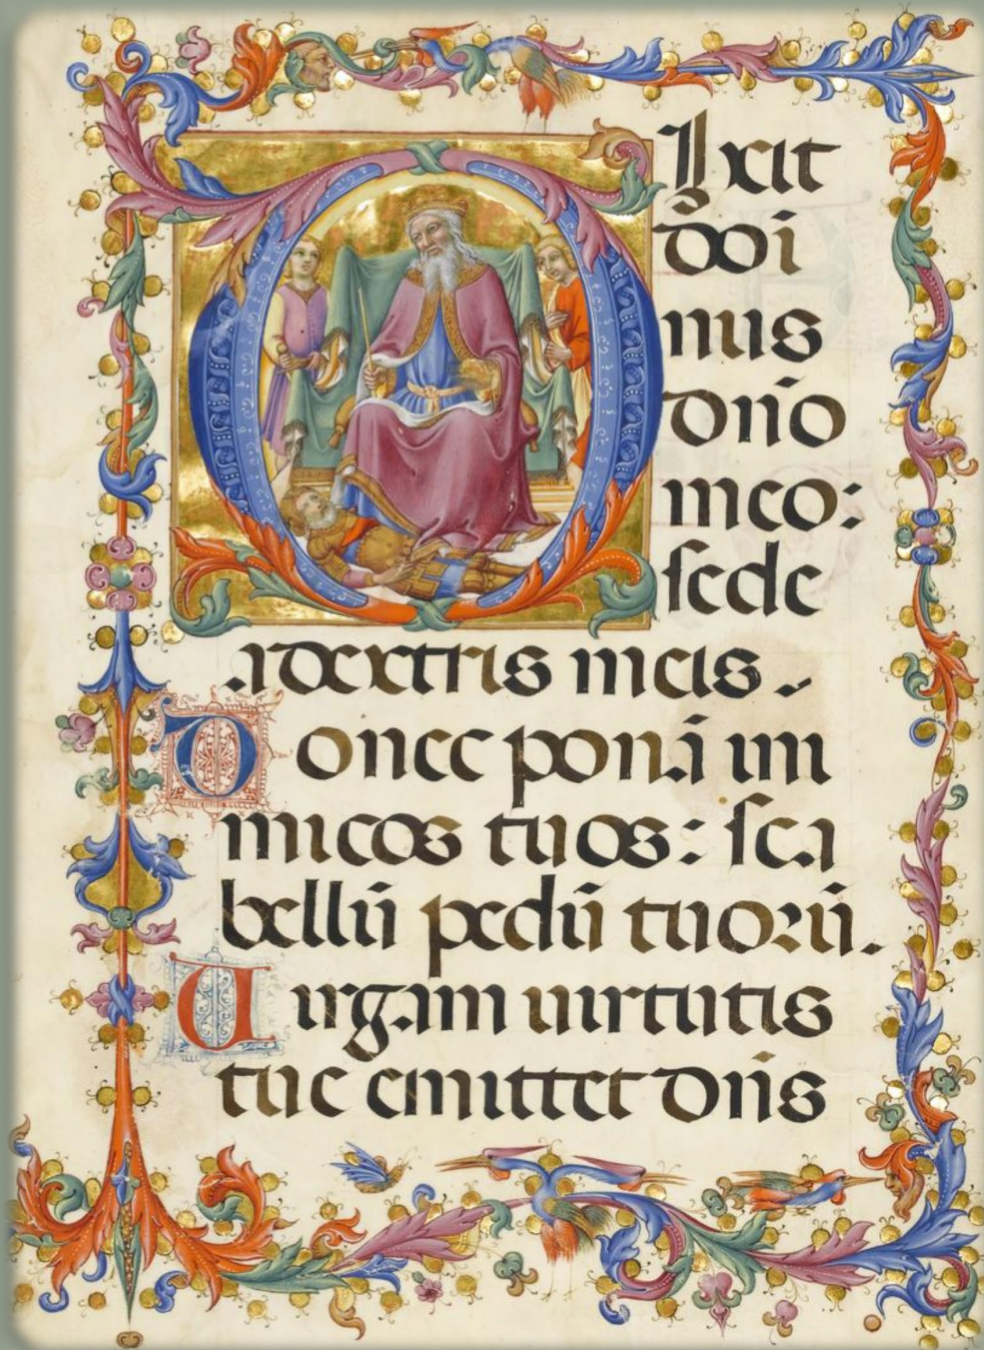 DIxit
doi
nus
dn̄o
meo:
sede
a dextris meis.
Donec ponā ini
micos tuos: sca
bellū pedū tuorū.
Uirgam uirtutis
tue emittet dn̄s